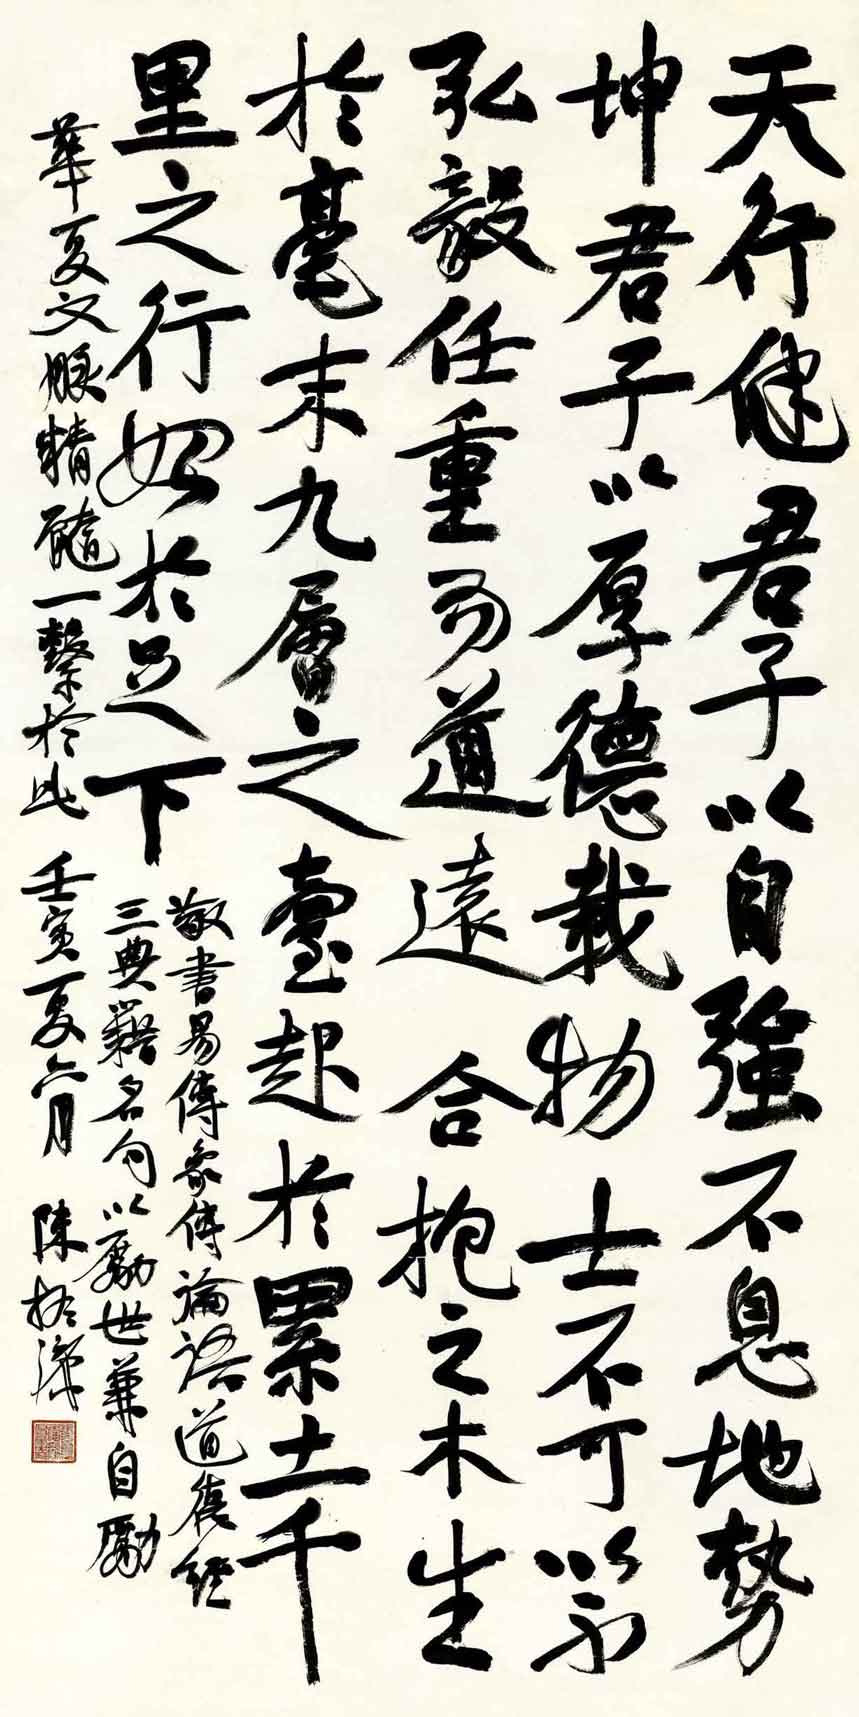 天行健君子以自強不息地勢
坤君子以厚德載物 士不可以不
弘毅任重而道遠 合抱之木生
於毫末九層之臺起於累土千
里之行始於足下
敬書易傳象傳論語道德經
三典籍名句以勵世兼自勵
華夏文脈精髓一繫於此 壬寅夏六月 陳振濂